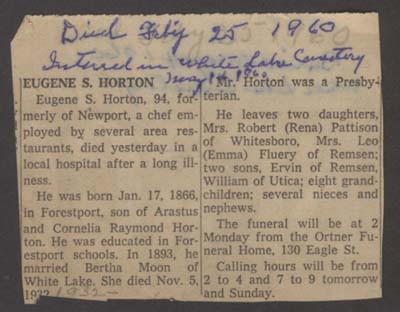 Died Feby 25 1960
Interred in White Lake Cemetery
May 14 1960
EUGENE S. HORTON
Eugene S. Horton, 94, for-
merly of Newport, a chef em-
ployed by several area res-
taurants, died yesterday in a
local hospital after a long ill-
ness.
He was born Jan. 17, 1866,
in Forestport, son of Arastus
and Cornelia Raymond Hor-
ton. He was educated in For-
estport schools. In 1893, he
married Bertha Moon of
White Lake. She died Nov. 5,
1932. 1932-
Mr. Horton was a Presby-
terian.
He leaves two daughters,
Mrs. Robert (Rena) Pattison
of Whitesboro, Mrs. Leo
(Emma) Fluery of Remsen;
two sons, Ervin of Remsen,
William of Utica; eight grand-
children; several nieces and
nephews.
The funeral will be at 2
Monday from the Ortner Fu-
neral Home, 130 Eagle St.
Calling hours will be from
2 to 4 and 7 to 9 tomorrow
and Sunday.